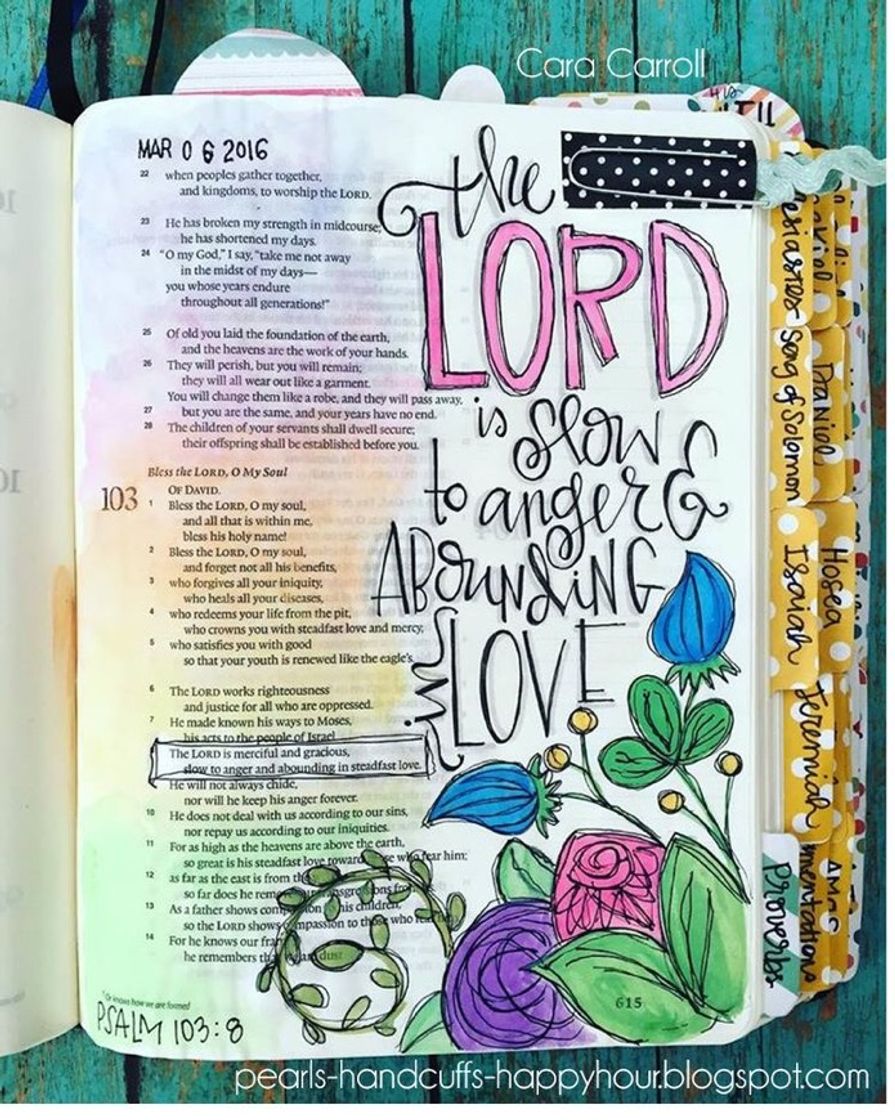 Cara Carroll
MAR 06 2016
22 when peoples gather together,
and kingdoms, to worship the LORD.
23 He has broken my strength in midcourse;
he has shortened my days.
24 "O my God," I say, "take me not away
in the midst of my days—
you whose years endure
throughout all generations!"
25 Of old you laid the foundation of the earth,
and the heavens are the work of your hands.
26 They will perish, but you will remain;
they will all wear out like a garment.
You will change them like a robe, and they will pass away,
27 but you are the same, and your years have no end.
28 The children of your servants shall dwell secure;
their offspring shall be established before you.
Bless the LORD, O My Soul
103 OF DAVID.
1 Bless the LORD, O my soul,
and all that is within me,
bless his holy name!
2 Bless the LORD, O my soul,
and forget not all his benefits,
3 who forgives all your iniquity,
who heals all your diseases,
4 who redeems your life from the pit,
who crowns you with steadfast love and mercy,
5 who satisfies you with good
so that your youth is renewed like the eagle's.
6 The LORD works righteousness
and justice for all who are oppressed.
7 He made known his ways to Moses,
his acts to the people of Israel.
The LORD is merciful and gracious,
slow to anger and abounding in steadfast love.
He will not always chide,
nor will he keep his anger forever.
10 He does not deal with us according to our sins,
nor repay us according to our iniquities.
11 For as high as the heavens are above the earth,
so great is his steadfast love toward those who fear him;
12 as far as the east is from the
so far does he remove our transgressions from
13 As a father shows compassion to his children,
so the LORD shows compassion to those who fear him.
14 For he knows our frame
he remembers that we are dust
Or knows how we are formed
PSALM 103:8
the
LORD
is slow
to anger &
ABOUNDING
in LOVE
615
Ecclesiastes
Song of Solomon
Isaiah
Jeremiah
Lamentations
Proverbs
Daniel
Hosea
Amos
pearls-handcuffs-happyhour.blogspot.com